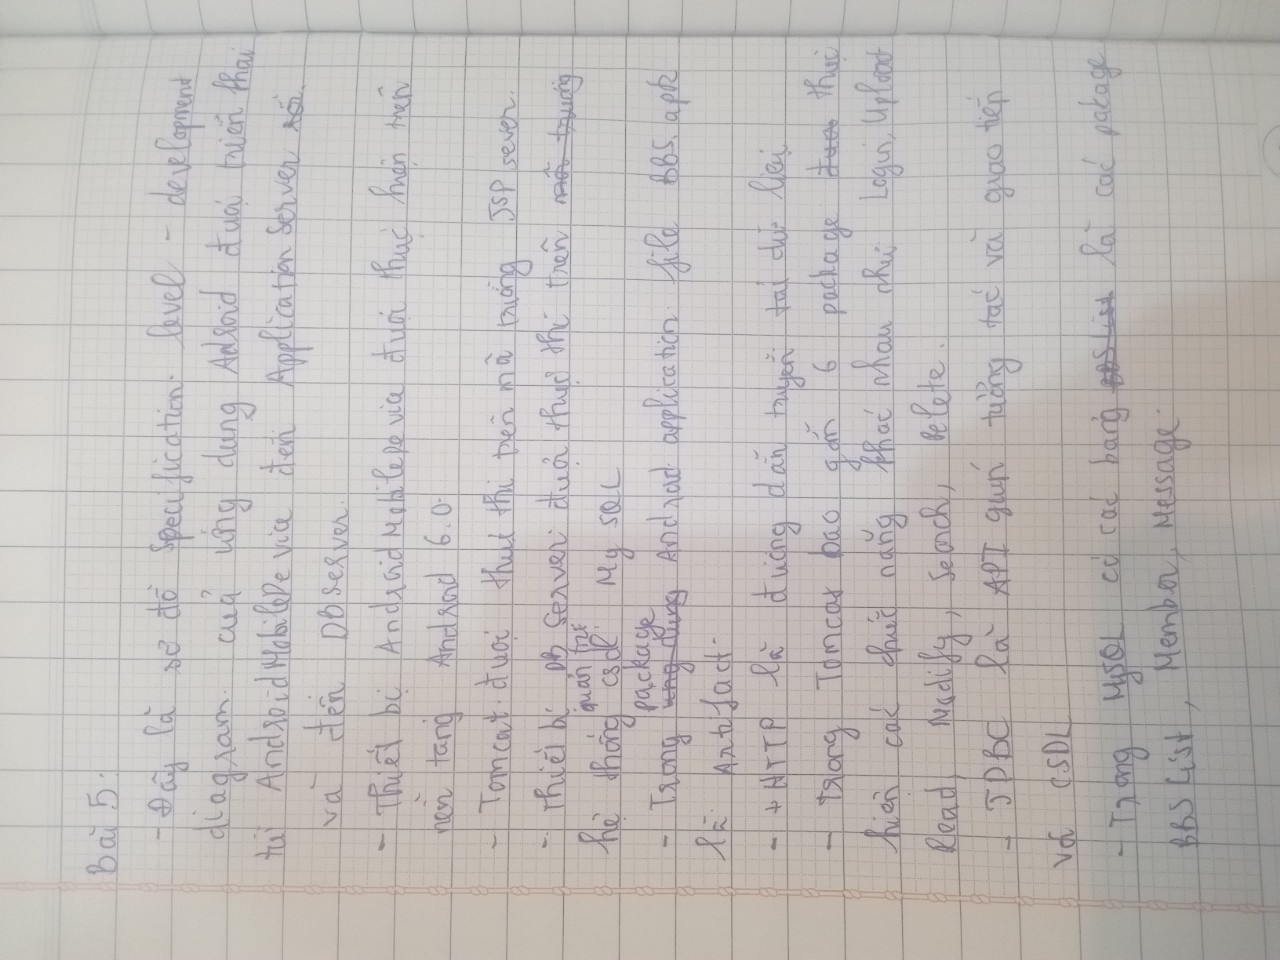 Bài 5:
- Đây là sơ đồ specification level - development
diagram của ứng dụng Adroid được triển khai
từ AndroidMobileDevice đến Application Server
và đến DB server.
- Thiết bị AndroidMobileDevice được thực hiện trên
nền tảng Android 6.0.
- Tomcat được thực thi trên môi trường JSP sever.
- Thiết bị DB Server được thực thi trên
hệ thống quản trị CSDL My SQL
- Trong package Android application file BBS.apk
là Artifact.
- + HTTP là đường dẫn truyền tải dữ liệu
- Trong Tomcat bao gồm 6 package thực
hiện các chức năng khác nhau như Login, Upload
Read, Modify, Search, Delete.
- JDBC là API giúp tương tác và giao tiếp
với CSDL
- Trong MySQL có các bảng là các pakage
BBS List, Member, Message.